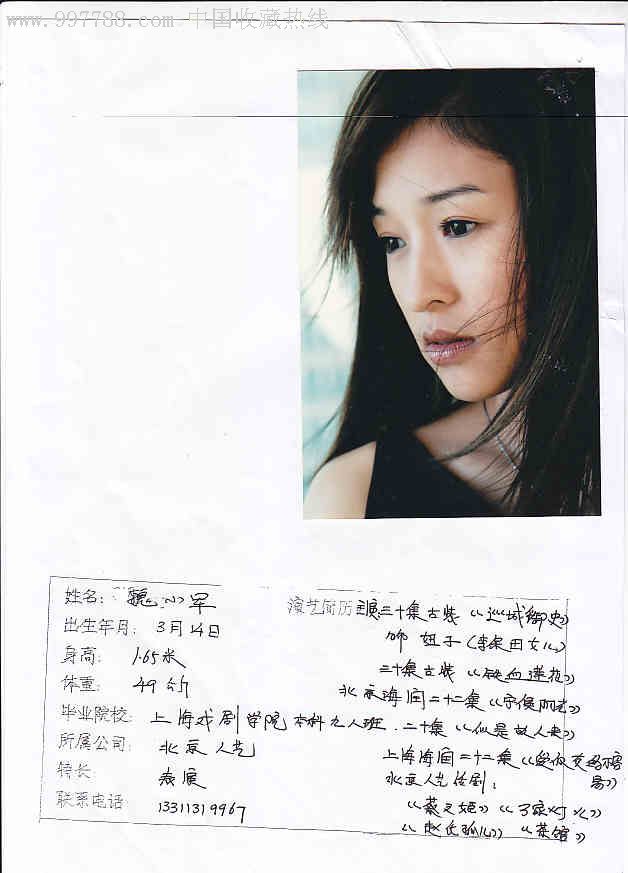 www.997788.com 中国收藏热线
姓名: 魏小军
出生年月: 3月14日
身高: 1.65米
体重: 49公斤
毕业院校: 上海戏剧学院本科九八班
所属公司: 北京人艺
特长 表展
联系电话 13311319967
演艺简历 主演三十集古装《巡城御史》
饰 妞子(李保田女儿)
三十集古装《碧血莲花》
北京海润二十二集
二十集《似是故人来》
上海海润二十二集
北京人艺话剧:
《蔡文姬》《万家灯火》
《赵氏孤儿》《茶馆》